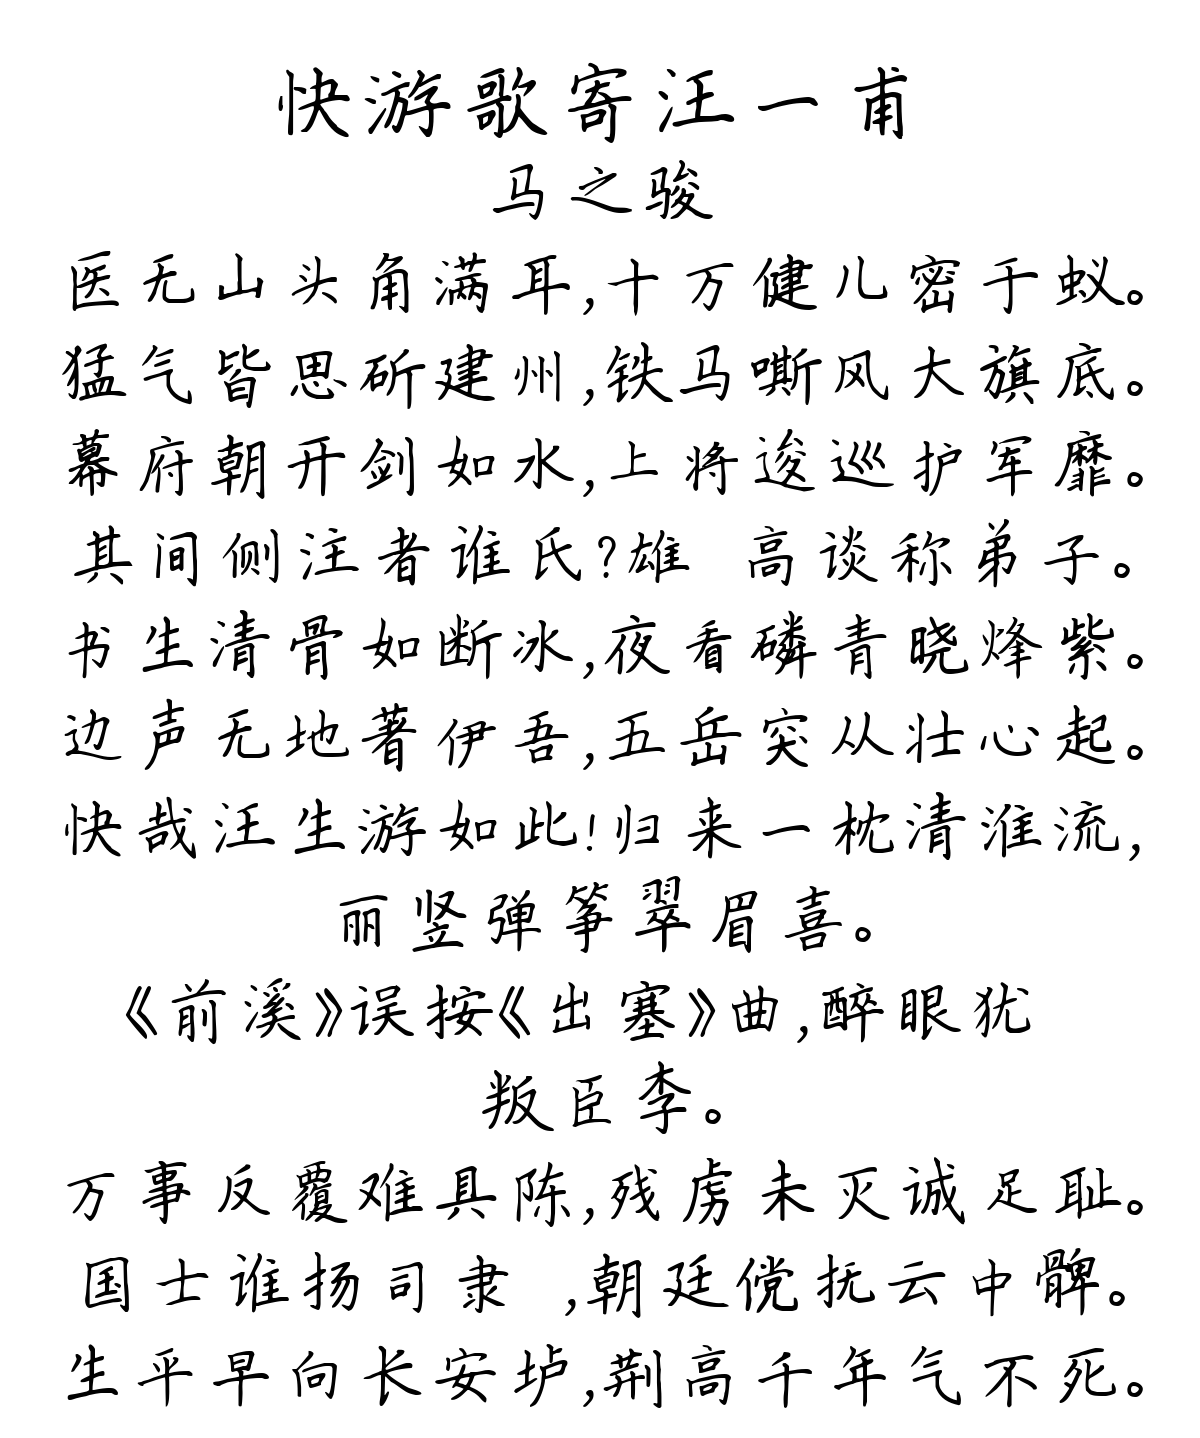 快游歌寄汪一甫
马之骏
医无山头角满耳,十万健儿密于蚁。
猛气皆思斫建州,铁马嘶风大旗底。
幕府朝开剑如水,上将逡巡护军靡。
其间侧注者谁氏?雄 高谈称弟子。
书生清骨如断冰,夜看磷青晓烽紫。
边声无地著伊吾,五岳突从壮心起。
快哉汪生游如此!归来一枕清淮流,
丽竖弹筝翠眉喜。
《前溪》误按《出塞》曲,醉眼犹
叛臣李。
万事反覆难具陈,残虏未灭诚足耻。
国士谁扬司隶 ,朝廷傥抚云中髀。
生平早向长安垆,荆高千年气不死。